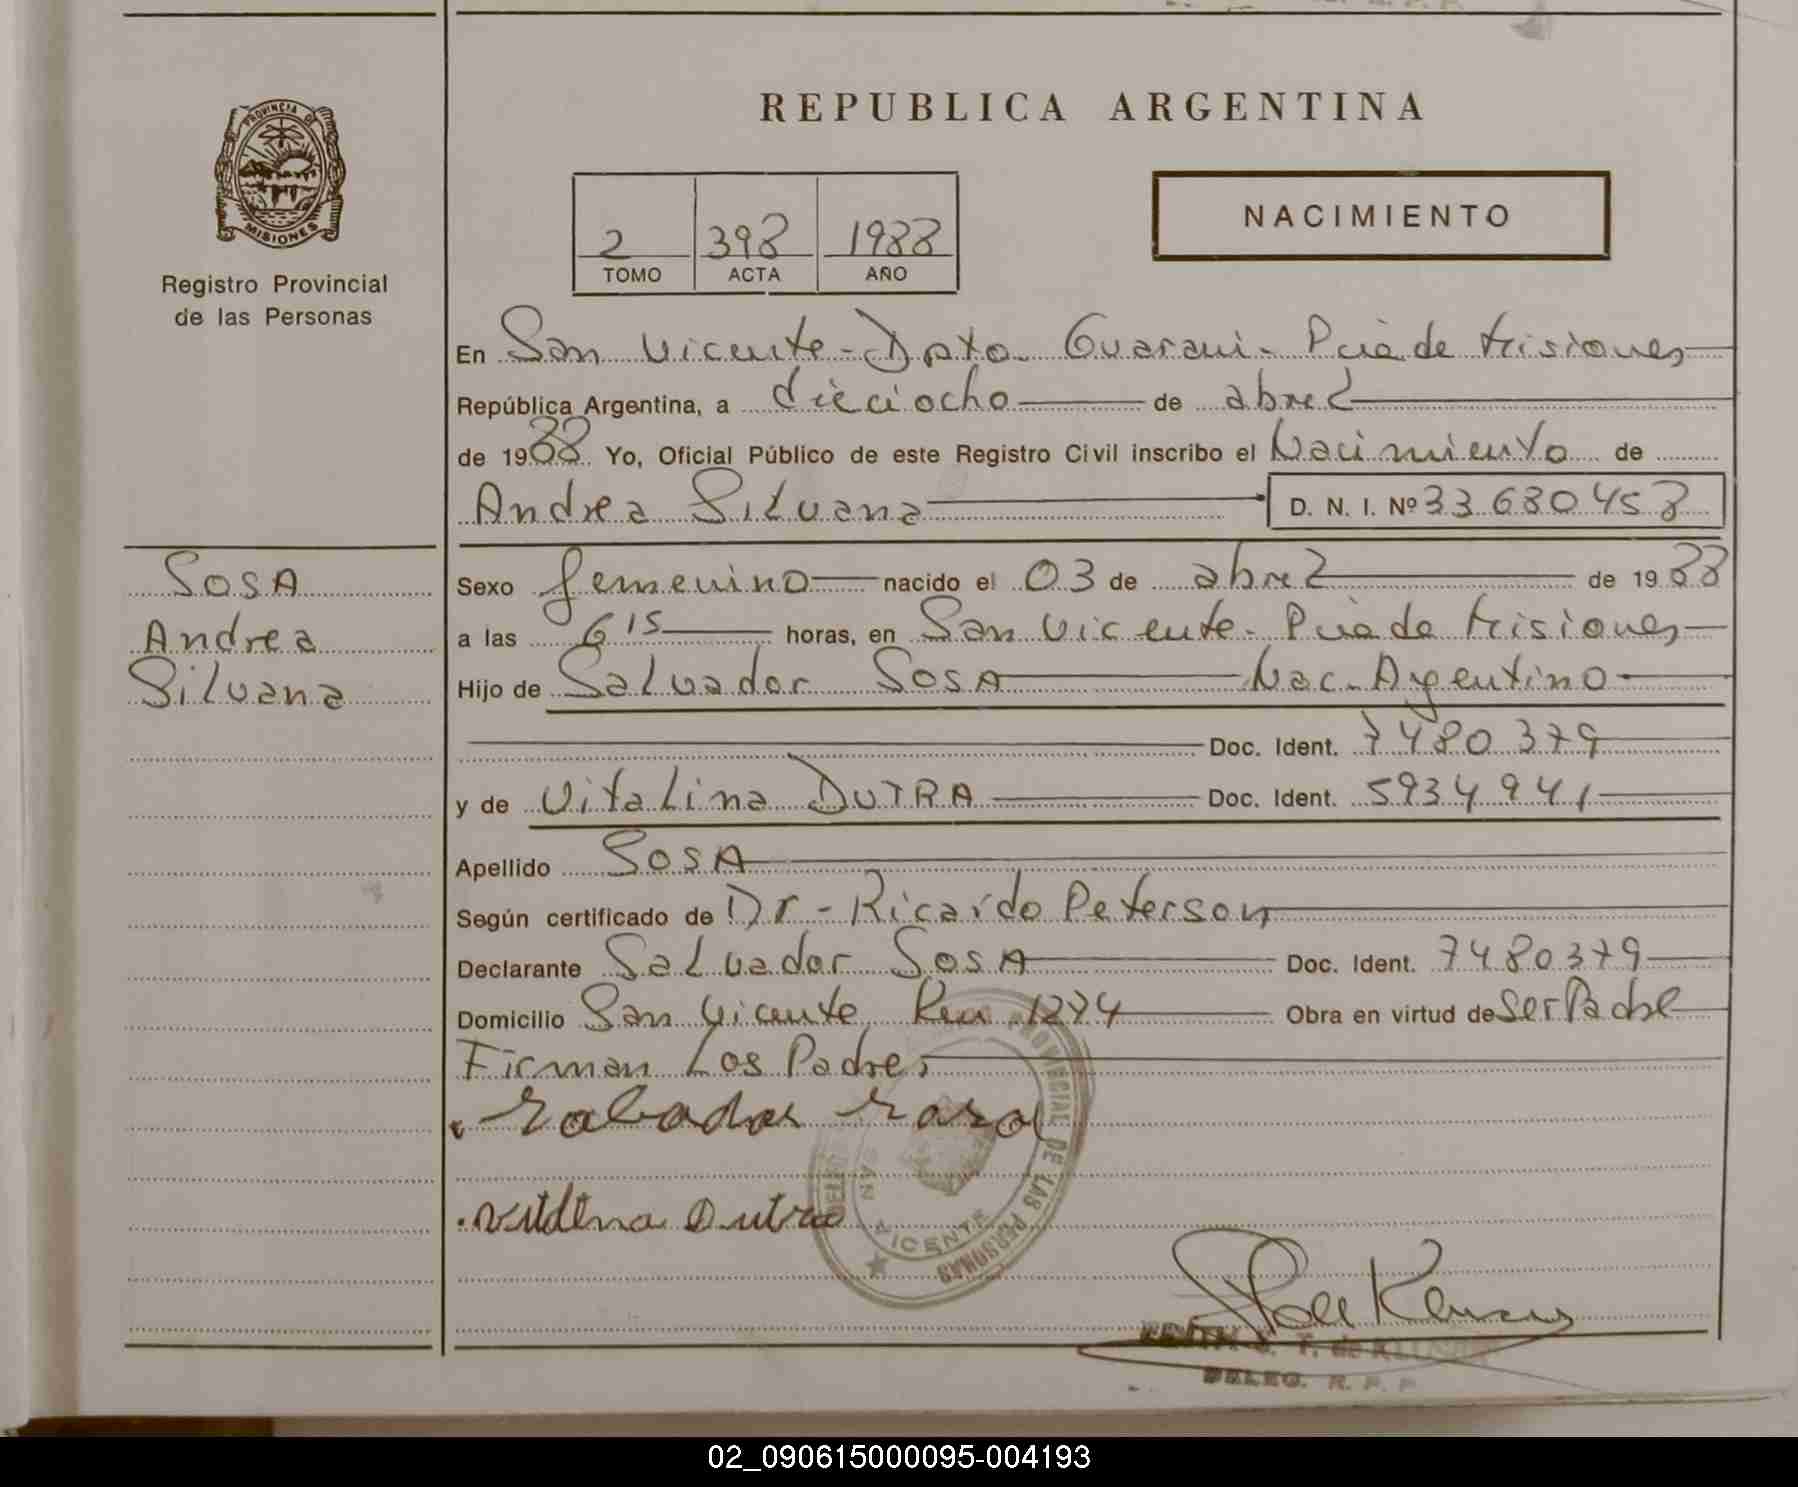 REPUBLICA ARGENTINA
PROVINCIA DE
MISIONES
Registro Provincial
de las Personas
2 398 1988
TOMO ACTA AÑO
NACIMIENTO
En San Vicente - Dpto. Guarani - Pcia de Misiones
República Argentina, a dieciocho de abril
de 1988 Yo, Oficial Público de este Registro Civil inscribo el Nacimiento de
Andrea Silvana D. N. I. Nº 33680458
SOSA
Andrea
Silvana
Sexo femenino nacido el 03 de abril de 1988
a las 6 15 horas, en San Vicente - Pcia de Misiones
Hijo de Salvador SOSA Nac. Argentino
Doc. Ident. 7480379
y de Vitalina DUTRA Doc. Ident. 5934941
Apellido SOSA
Según certificado de Dr - Ricardo Peterson
Declarante Salvador SOSA Doc. Ident. 7480379
Domicilio San Vicente Km 1274 Obra en virtud de Ser Padre
Firman Los Padres
PROVINCIAL DE LAS PERSONAS
VICENTE
DELEG. R. P. P.
02_090615000095-004193